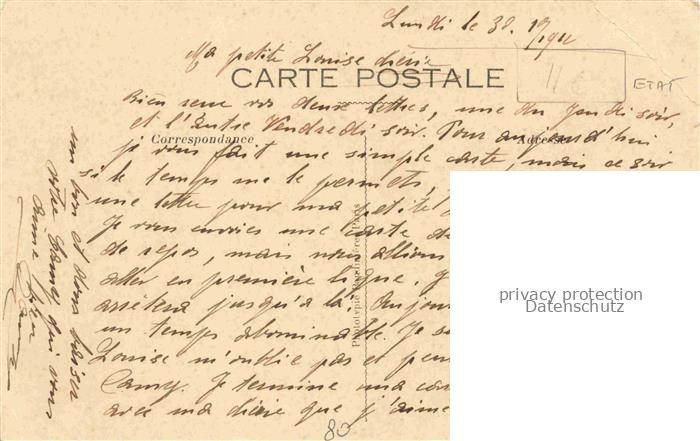 Lundi le 30.
Ma petite Louise chérie
CARTE POSTALE
ETAT
Bien reçu vos deux lettres, une du Jeudi soir,
et l'autre Vendredi soir. Pour aujourd'hui
Correspondance
Adresse
je vous fait une simple carte, mais ce soir
si le temps me le permets,
une lettre pour ma petite
Je vous envoies une carte de
de repos, mais nous allions
aller en première ligne.
arrêtera jusqu'à là!
un temps abominable. Je
Louise m'oublie pas et
Camy. Je termine ma
avec ma chérie que j'aime
80
un bon et doux baiser
votre Camy qui vous
aime
Phototypie Baudinière, Paris
privacy protection
Datenschutz